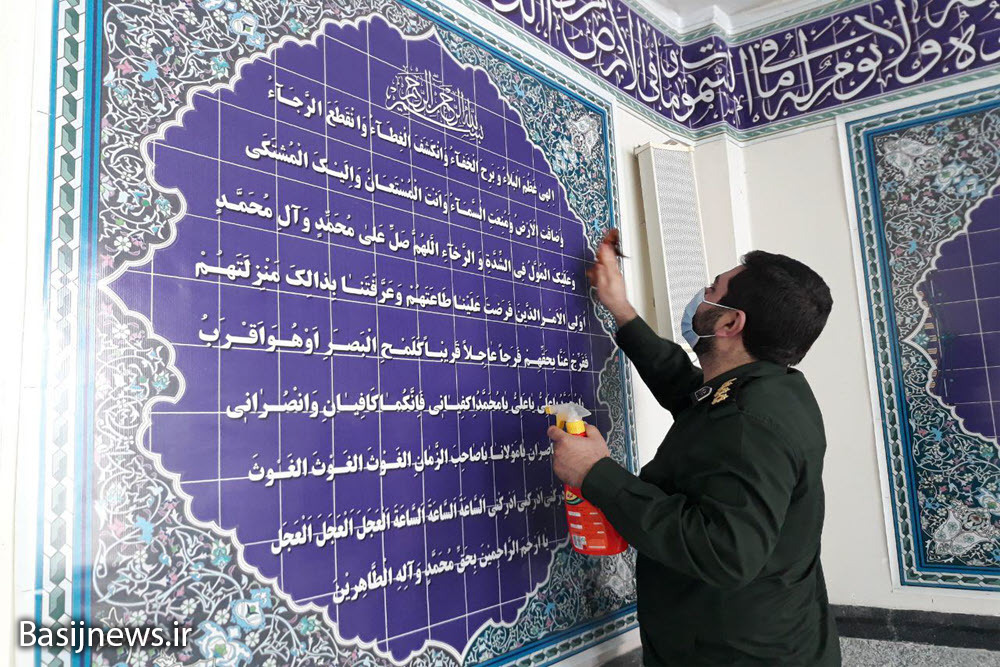 بسم الله الرحمن الرحیم
الهی عَظُمَ البَلاءُ وَ بَرِحَ الخَفآءُ وَانْکَشَفَ الغِطآءُ وَانْقَطَعَ الرَّجآءُ
وَضاقَتِ الاَرْضُ وَمُنِعَتِ السَّمآءُ وَاَنْتَ الْمُسْتَعانُ وَاِلَیْکَ الْمُشْتَکی
وَعَلَیْکَ الْمُعَوَّلُ فِی الشِّدَّةِ وَ الرَّخآءِ اَللّهُمَّ صَلِّ عَلی مُحَمَّدٍ وَآلِ مُحَمَّدٍ
اُولِی الاَمْرِ الَّذینَ فَرَضْتَ عَلَیْنا طاعَتَهُمْ وَعَرَّفْتَنا بِذالِکَ مَنْزِلَتَهُمْ
فَفَرِّجْ عَنّا بِحَقِّهِمْ فَرَجاً عاجِلاً قَریباً کَلَمْحِ الْبَصَرِ اَوْ هُوَ اَقْرَبُ
یا عَلِیُّ یا عَلِیُّ یا مُحَمَّدُ اِکْفِیانی فَاِنَّکُما کافِیانِ وَانْصُرانی
یا مَوْلانا یا صاحِبَ الزَّمانِ الغَوْثَ الغَوْثَ الغَوْثَ
اَدْرِکْنی اَدْرِکْنی السّاعَةَ السّاعَةَ السّاعَةَ الْعَجَلَ الْعَجَلَ الْعَجَلَ
یا اَرْحَمَ الرّاحِمینَ بِحَقِّ مُحَمَّدٍ وَآلِهِ الطّاهِرینَ
Basijnews.ir